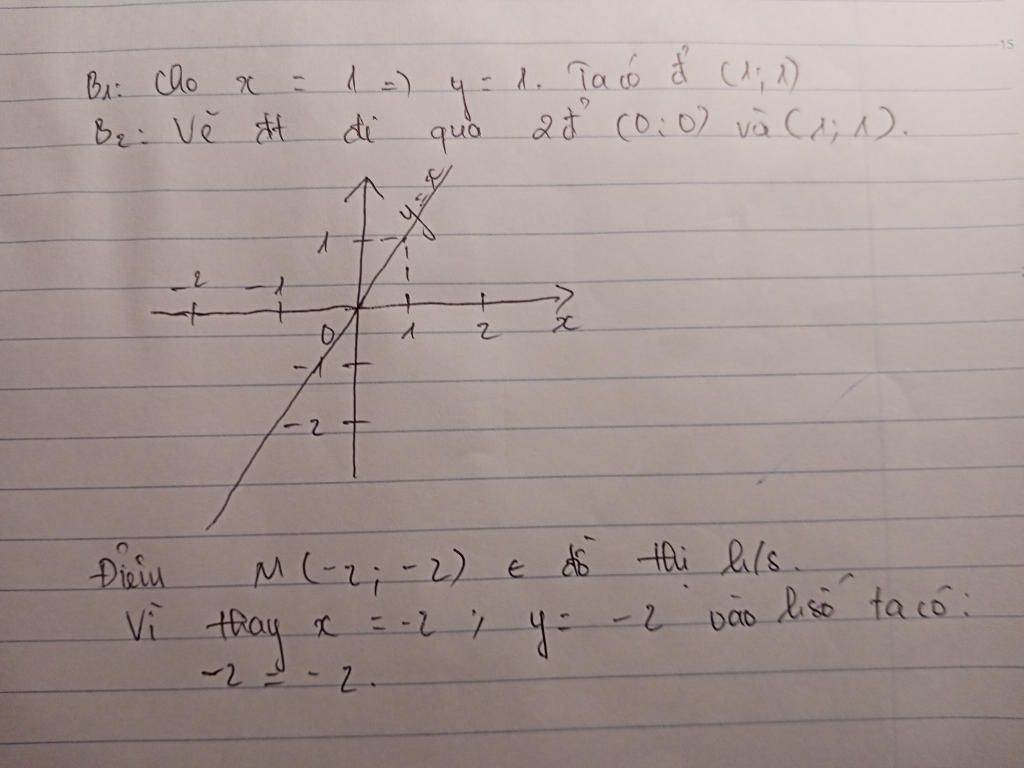 B1: Cho x = 1 => y = 1. Ta có đ' (1; 1)
B2: Vẽ đt đi qua 2đ' (0; 0) và (1; 1).
y = x
1
-2 -1
0 1 2 x
-1
-2
Điểm M (-2; -2) ∈ đồ thị h/s.
Vì thay x = -2; y = -2 vào h số ta có:
-2 = -2.